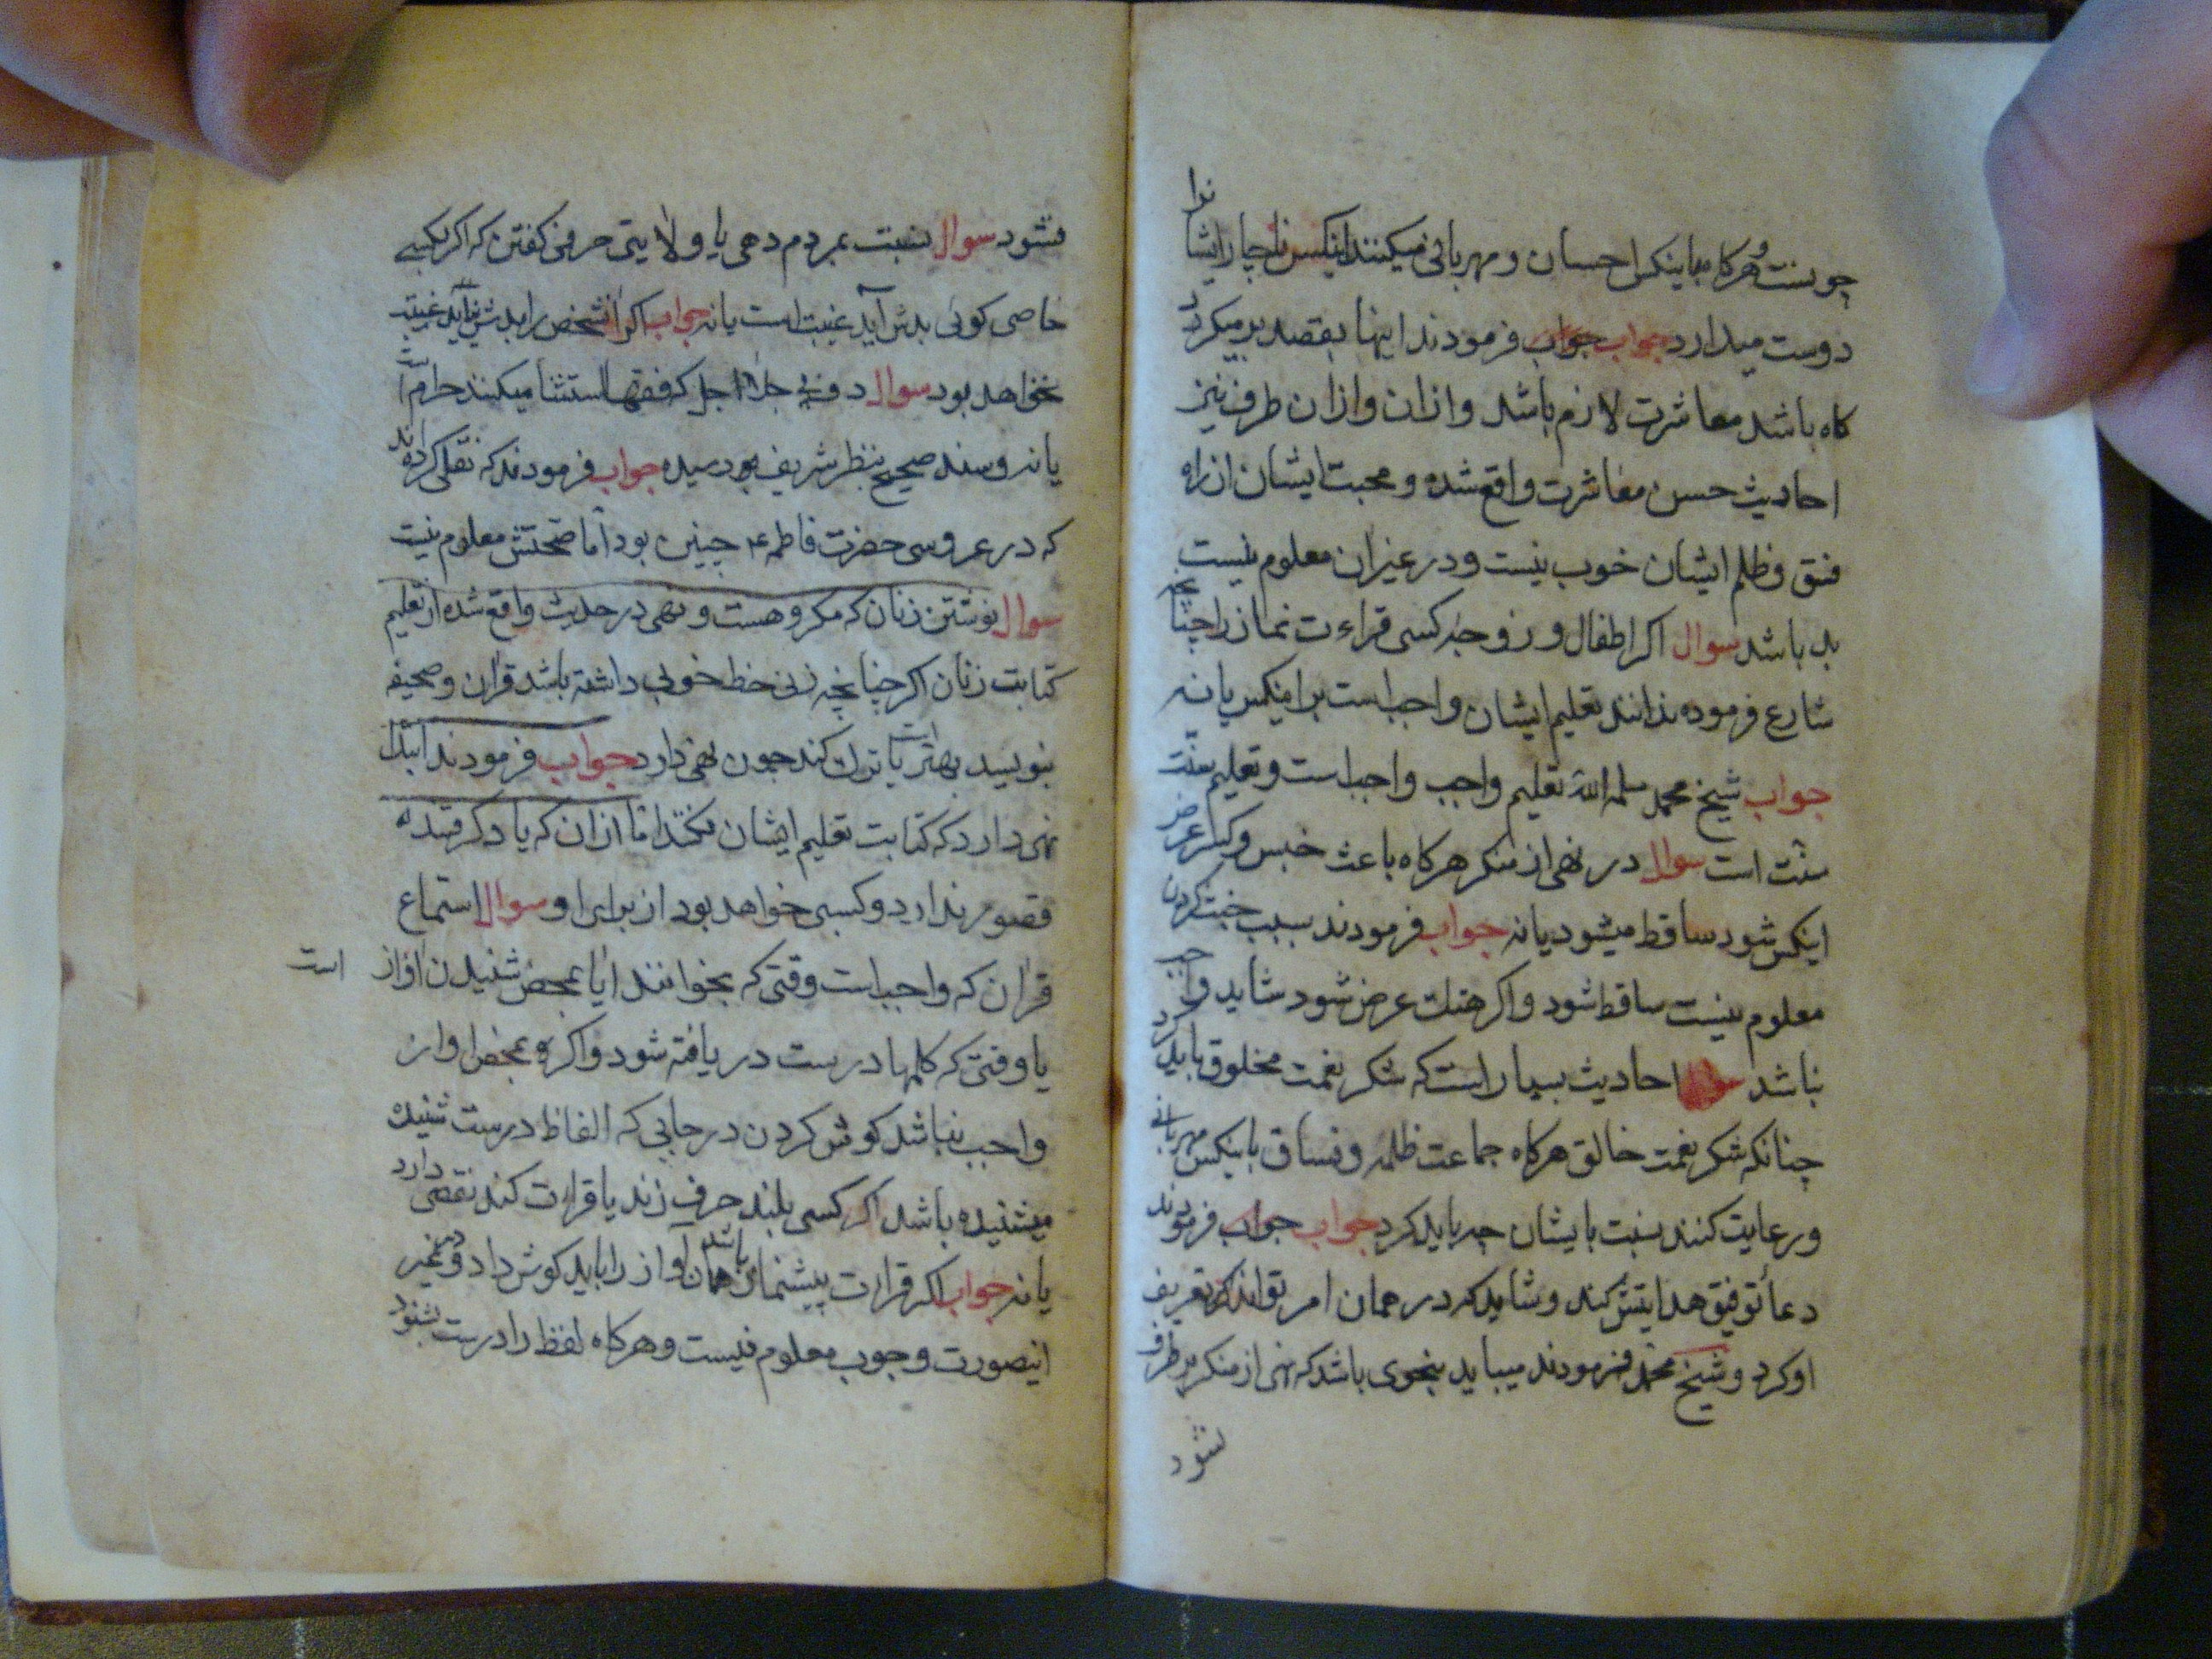 چونست و هرکاه با ینکس احسان و مهربانی میکنند اینکس ناچار ایشانرا
دوست میدارد جواب جواب فرمودند اینها بقصد بر میکردد
کاه باشد معاشرت لازم باشد و ازان و ازان طرف نیز
احادیث حسن معاشرت واقع شده و محبت ایشان از راه
فسق و ظلم ایشان خوب نیست و در غیر ان معلوم نیست
بد باشد سوال اکر اطفال و زوجه کسی قراءت نماز را چنانچه
شارع فرموده ندانند تعلیم ایشان واجب است بر اینکس یا نه
جواب شیخ محمد سلمه الله تعلیم واجب واجب است و تعلیم سنت
سنت است سوال در نهی از منکر هرکاه باعث خبس و کسر عرض
اینکس شود ساقط میشود یا نه جواب فرمودند بسبب خبث کردن
معلوم نیست ساقط شود و اکر هتک عرض شود شاید واجب
نباشد سوال احادیث بسیار است که شکر نعمت مخلوق باید کرد
چنانکه شکر نعمت خالق هرکاه جماعت ظلمه و فساق باینکس مهربانی
و رعایت کنند نسبت بایشان چه باید کرد جواب جواب فرمودند
دعا توفیق هدایتش کند و شاید که در همان امر تواند که تعریف
او کرد و شیخ محمد فرمودند میباید بنحوی باشد که نهی از منکر بر طرف
نشود
مشود سوال نسبت بمردم دهی یا ولایتی حرفی کفتن که اکر بکسی
خاصی کوئی بدش آید غیبت است یا نه جواب اکر انشخص را بدش نیاید غیبت
نخواهد بود سوال دف بی جلاجل که فقها استثنا میکنند حرام است
یا نه و سند صحیح بنظر شریف رسیده جواب فرمودند که نقل کرده اند
که در عروسی حضرت فاطمه ع چنین بود اما صحتش معلوم نیست
سوال نوشتن زنان که مکروهست و نهی در حدیث واقع شده از تعلیم
کتابت زنان اکر چنانچه زنی خط خوبی داشته باشد قران و صحیفه
بنویسد بهتر است یا ترک کند چون نهی دارد جواب فرمودند ابتدا
نهی دارد که کتابت تعلیم ایشان نکنند اما ازان که یاد کرفتند
قصور ندارد و کسبی خواهد بود از برای او سوال استماع
قران که واجب است وقتی که بخوانند ایا بمحض شنیدن اواز است
یا وقتی که کلمها درست دریافته شود و اکر بمحض اواز
واجب نباشد کوش کردن در جایی که الفاظ درست شنیده
میشنیده باشد اکر کسی بلند حرف زند یا قراءت کند نقصی دارد
یا نه جواب اکر قراءت پیشنماز باشد همان آواز را باید کوش داد و در غیر
اینصورت وجوب معلوم نیست و هرکاه لفظ را درست بشنود